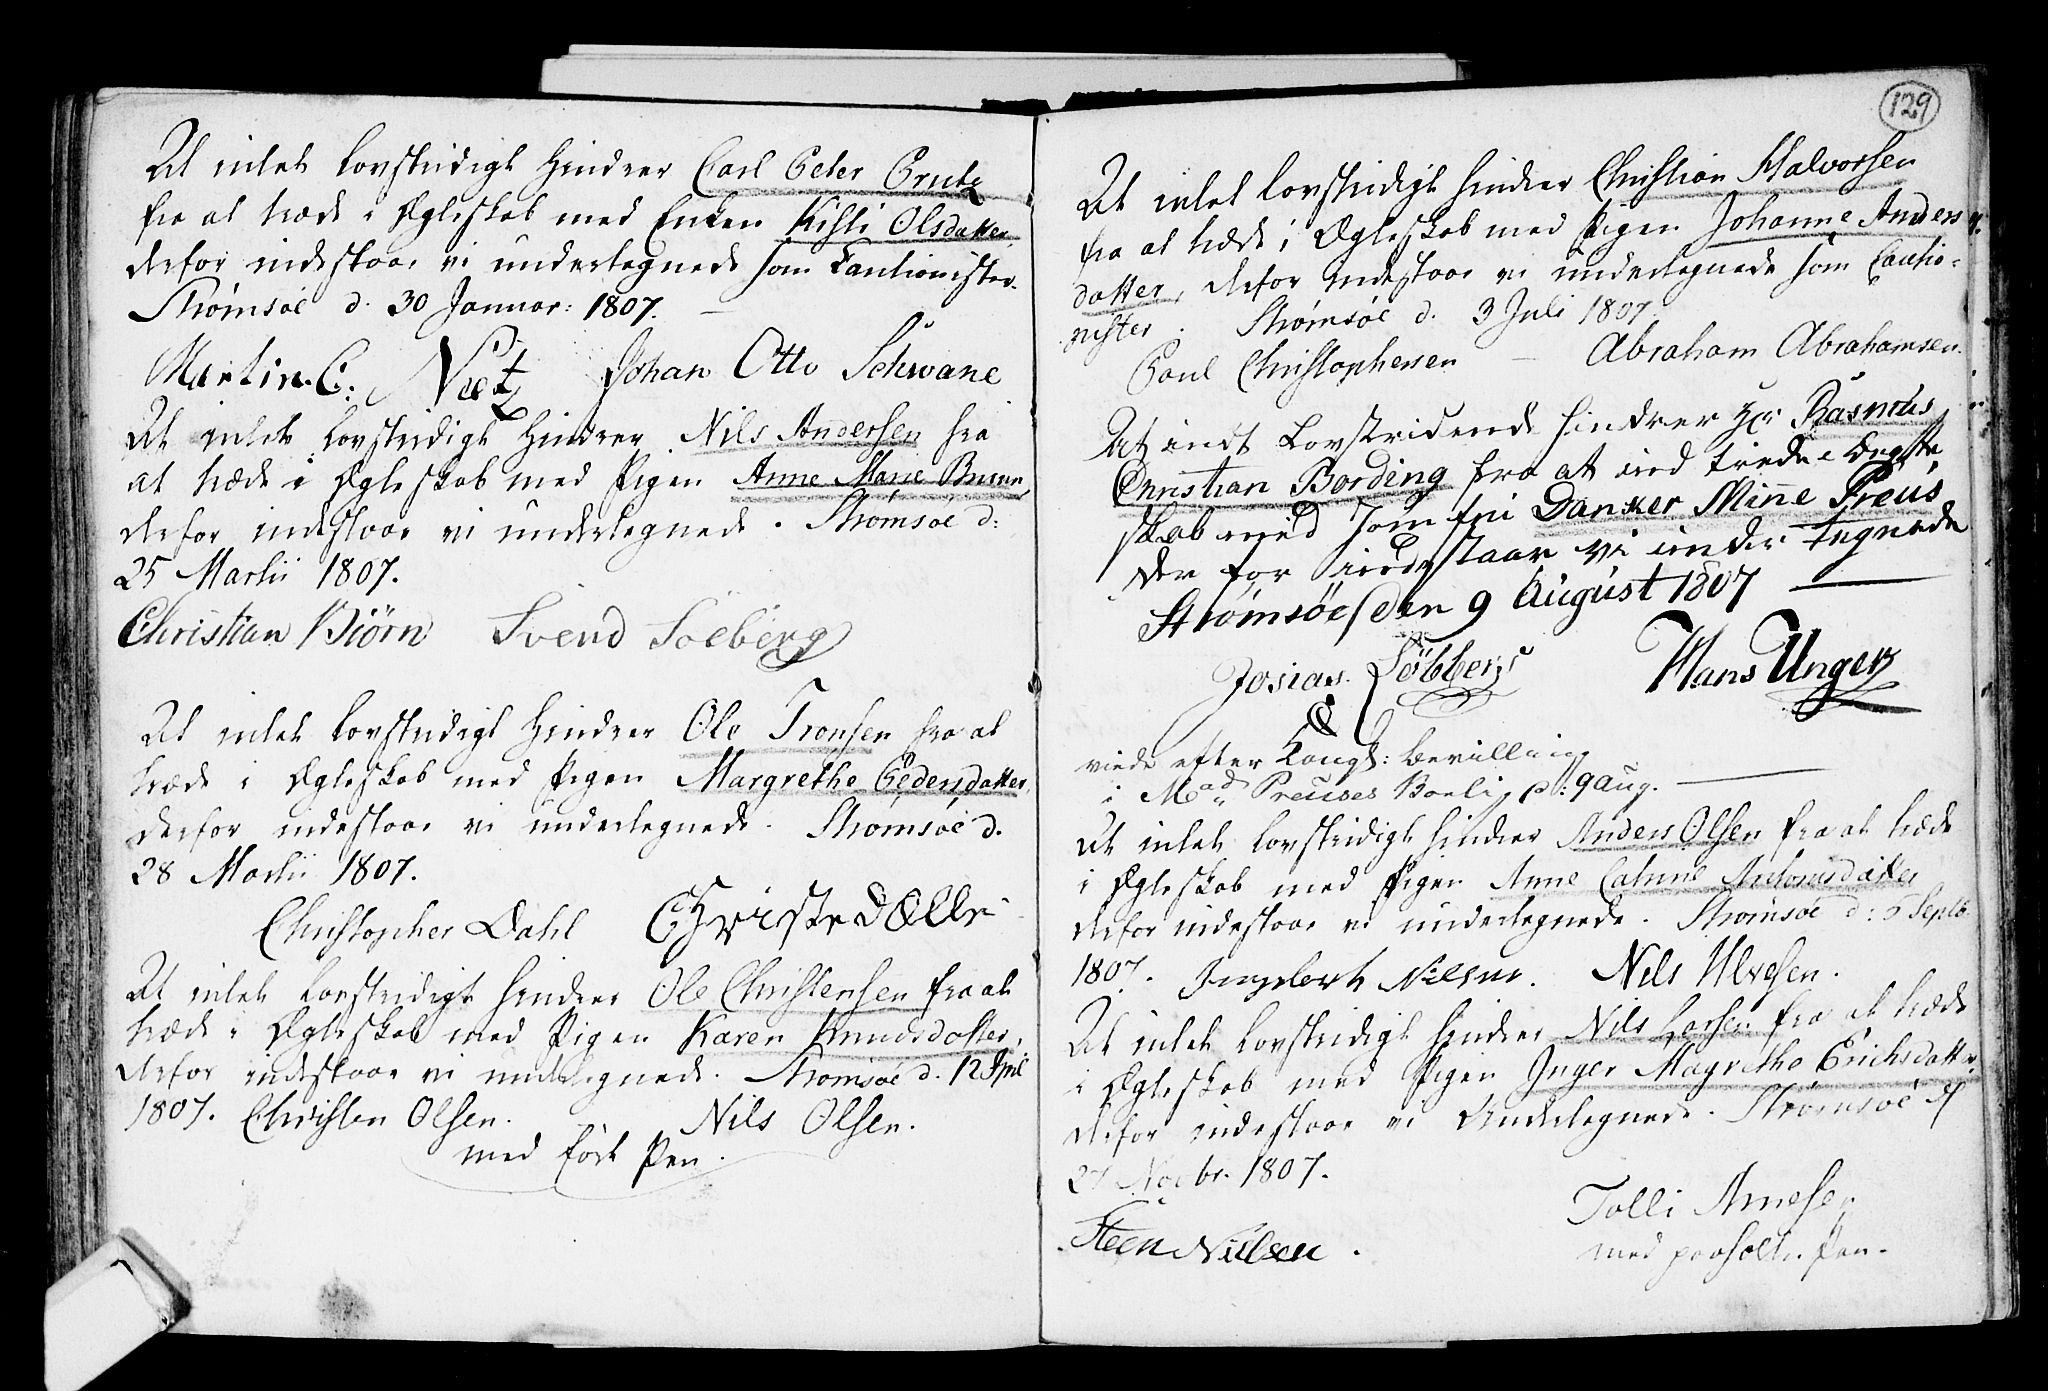 At intet lovstridigt hindrer Carl Peter
fra at træde i Ægteskab med Enken Kisti Olsdatter,
derfor indestaae vi undertegnede som Cautionister.
Strømsøe d. 30 Januar: 1807.
Martin C: Johan Otto Schwane
At intet lovstridigt hindrer Nils Andersen fra
at træde i Ægteskab med Pigen Anne Marie Bruun,
derfor indestaae vi undertegnede. Strømsøe d:
25 Martii 1807.
Christian Biörn Svend Soeberg
At intet lovstridigt hindrer Ole Tronsen fra at
træde i Ægteskab med Pigen Margrethe Pedersdatter,
derfor indestaae vi undertegnede. Strømsøe d.
28 Martii 1807.
Christopher Dahl
At intet lovstridigt hindrer Ole Christensen fra at
træde i Ægteskab med Pigen Karen Knudsdatter,
derfor indestaae vi undertegnede. Strømsøe d. 12 April
1807. Christen Olsen. Nils Olsen.
med ført Pen.
129
At intet lovstridigt hindrer Christian Halvorsen
fra at træde i Ægteskab med Pigen Johanne Anders
datter, derfor indestaae vi undertegnede som Cautio-
nister. Strømsøe d. 3 Juli 1807.
Poul Christophersen — Abraham Abrahamsen.
At indt Lovstridende hindrer Hr Rasmus
Christian Bording fra at ind træde i Ægte
skab med Jomfru Danker Mine Preus,
der for inde staar vi under tegnede
Strømsøe den 9 August 1807
Josias Hans Unger
viede efter Kongl: bevilling
i Mad Preuses Bolig d: 9 aug.
At intet lovstridigt hindrer Anders Olsen fra at træde
i Ægteskab med Pigen Anne Catrine Antonisdatter
derfor indestaae vi undertegnede. Strømsøe d: 5 Septb
1807. Ingebret Nilsen. Nils Ulvesen.
At intet lovstridigt hindrer Nils Larsen fra at træde
i Ægteskab med Pigen Inger Magrethe Erichsdatter,
derfor indestaae vi Undertegnede. Strømsøe d
27 Novbr. 1807.
Steen Nielsen. Tolli Arnesen
med paaholden Pen.